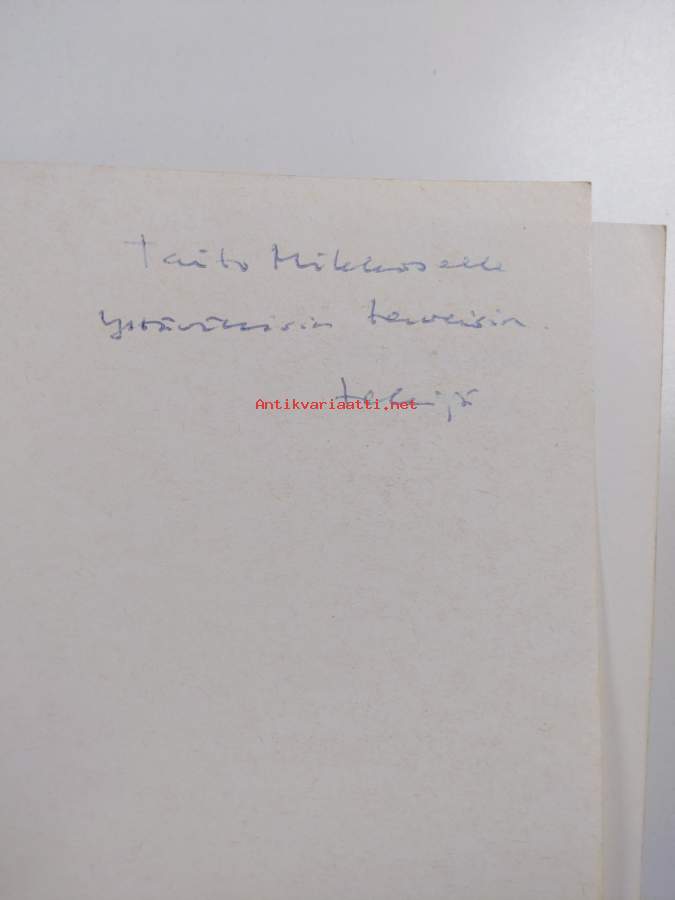 Taito Mikkoselle
ystävällisin terveisin.
tekijä
Antikvariaatti.net